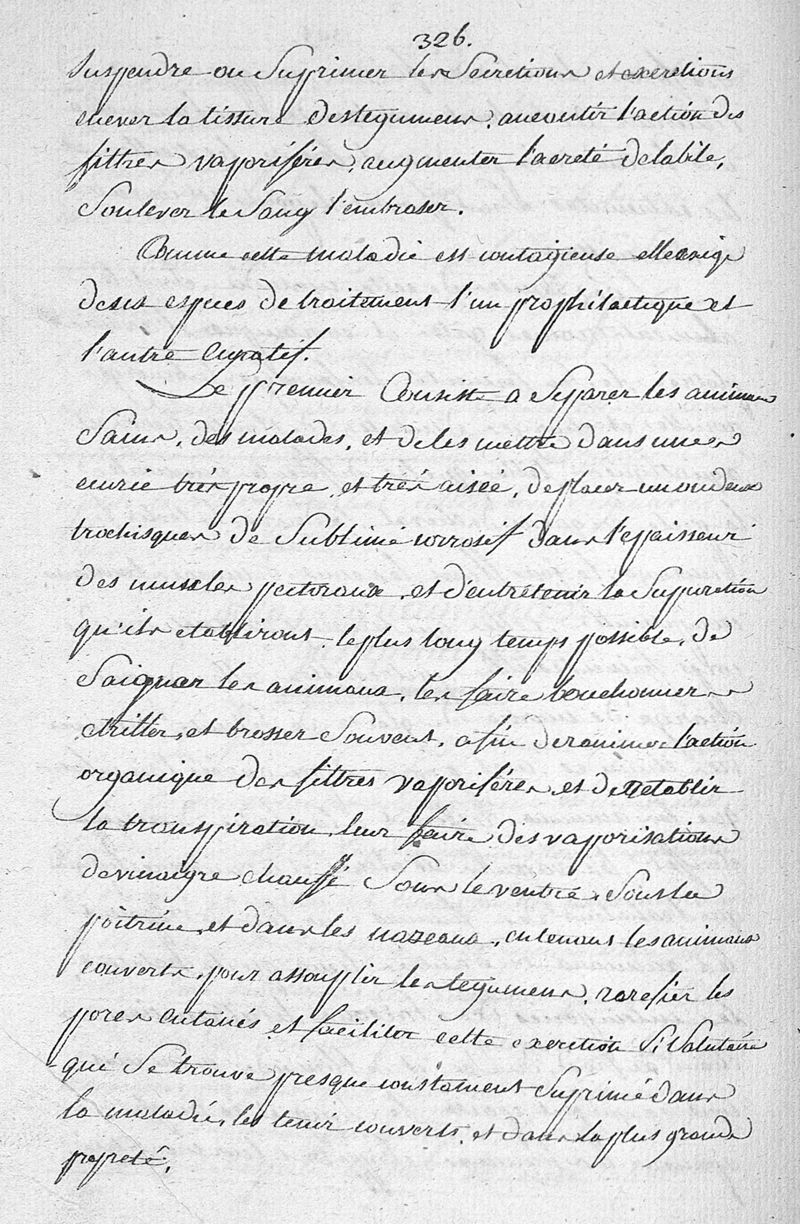 326.
suspendre ou suprimer les secretions et excretions
enever la tissure destegumens, aneentir l'action des
filtres vaporiféres, augmenter l'acreté delabile,
soulever le sang l'embraser.
Comme cette maladie est contagieuse elle exige
deux espeçes de traitement l'un prophilactique et
l'autre curatif.
Le premier Consiste a separer les animaux
sains, des malades, et deles mettre dans une
ecurie trés propre, et trés aisée, deplacer un ou deux
trochisques de sublimé corrosif dans l'epaisseur
des muscles pectoraux, et d'entretenir la supuration
qu'ils etabliront, le plus long temps possible, de
saigner les animaux, les faire bouchonner
etriller, et brosser souvent, afin deranimer l'action
organique des filtres vaporiféres, et de retablir
la transpiration, leur faire des vaporisations
devinaigre chauffé sous le ventre, sous la
poitrine, et dans les nazeaux, en tenans les animaux
couverts, pour assouplir les tegumens, rarefier les
pores cutanés et faciliter cette excretion si salutaire
qui se trouve presque constament suprimé dans
la maladie, les tenir couverts, et dans la plus grande
propreté.